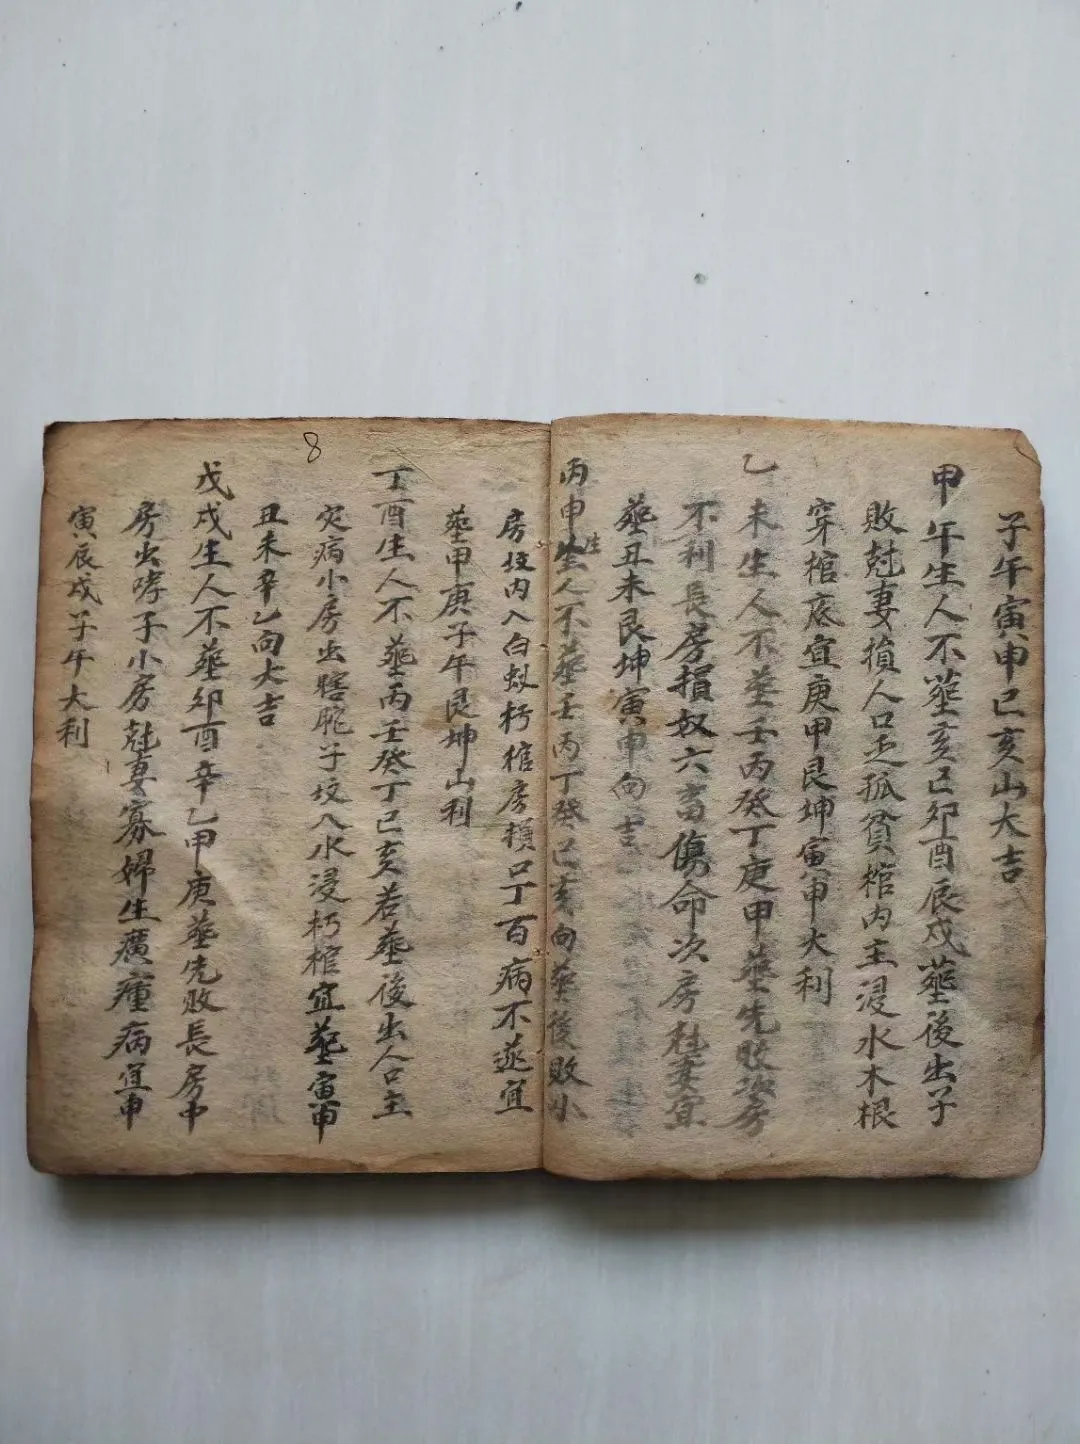 子午寅申巳亥山大吉
甲午生人不塟亥巳卯酉辰戍塟後出子
敗尅妻損人口乏孤貧棺内主浸水木根
穿棺底宜庚甲艮坤寅申大利
乙未生人不塟壬丙癸丁庚甲塟先敗房
不利長房損奴六畜傷命次房尅妻宜
塟丑未艮坤寅申向吉
丙申生人不塟壬丙丁癸巳亥向塟後敗小
生
房坟内入白蚁朽棺房損口丁百病不遂宜
塟甲庚子午艮坤山利
丁酉生人不塟丙壬癸丁巳亥若塟後出人口主
灾病小房出瞎駝子坟入水浸朽棺宜塟寅申
丑未辛乙向大吉
戊戍生人不塟卯酉辛乙甲庚塟先敗長房中
房出哮子小房尅妻寡婦生癀瘇病宜申
寅辰戍子午大利
8